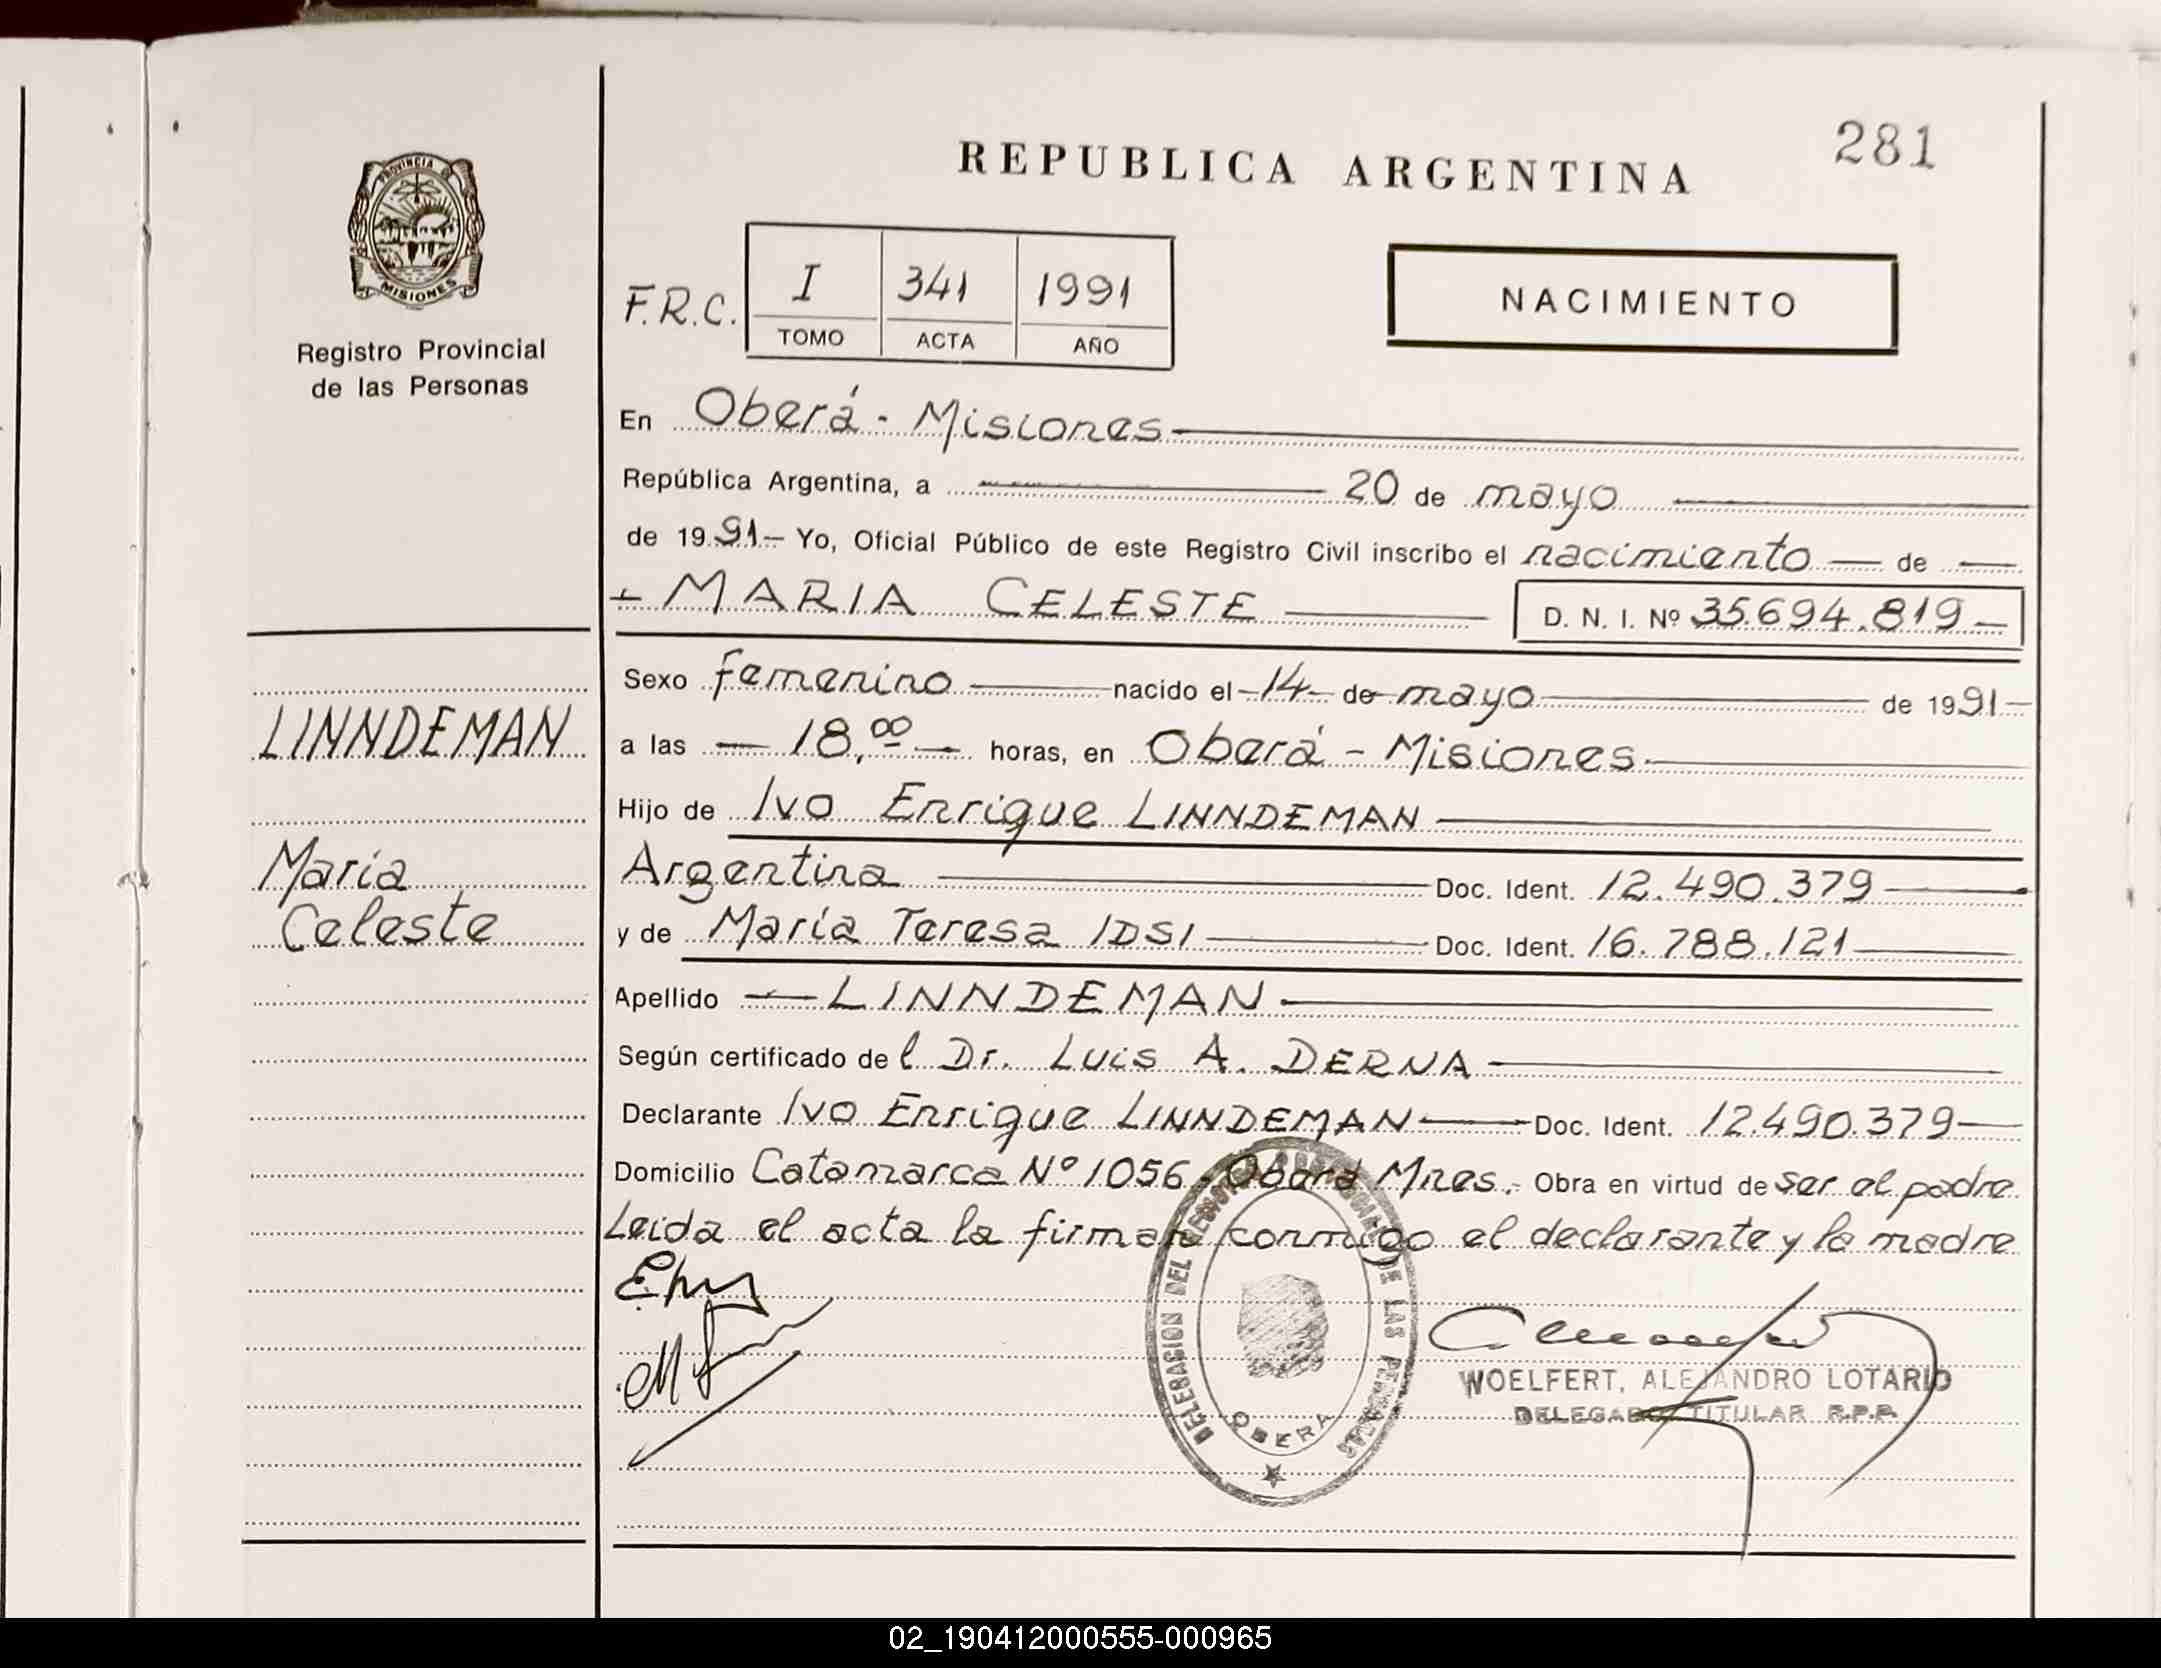 281
REPUBLICA ARGENTINA
PROVINCIA
MISIONES
Registro Provincial
de las Personas
F.R.C.
I 341 1991
TOMO ACTA AÑO
NACIMIENTO
En Oberá - Misiones
República Argentina, a 20 de mayo
de 1991- Yo, Oficial Público de este Registro Civil inscribo el nacimiento de
MARIA CELESTE D. N. I. Nº 35.694.819
LINNDEMAN
María
Celeste
Sexo femenino nacido el 14 de mayo de 1991
a las 18,00 horas, en Oberá - Misiones
Hijo de Ivo Enrique LINNDEMAN
Argentina Doc. Ident. 12.490.379
y de María Teresa IDSI Doc. Ident. 16.788.121
Apellido LINNDEMAN
Según certificado del Dr. Luis A. DERNA
Declarante Ivo Enrique LINNDEMAN Doc. Ident. 12.490.379
Domicilio Catamarca Nº 1056 - Oberá Mnes.- Obra en virtud de ser el padre
Leída el acta la firman conmigo el declarante y la madre
DELEGACION DEL REGISTRO PROVINCIAL DE LAS PERSONAS
OBERA
WOELFERT, ALEJANDRO LOTARIO
DELEGADO TITULAR R.P.P.
02_190412000555-000965